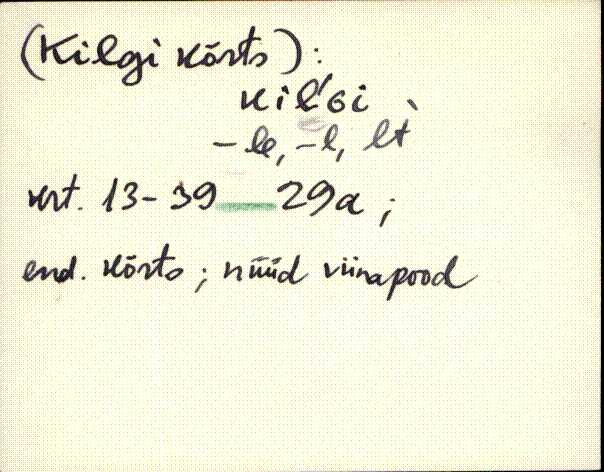 (Kilgi kõrts):
kil'Gi
-le, -l, lt
krt. 13-39 — 29a;
end. kõrts; nüüd viinapood